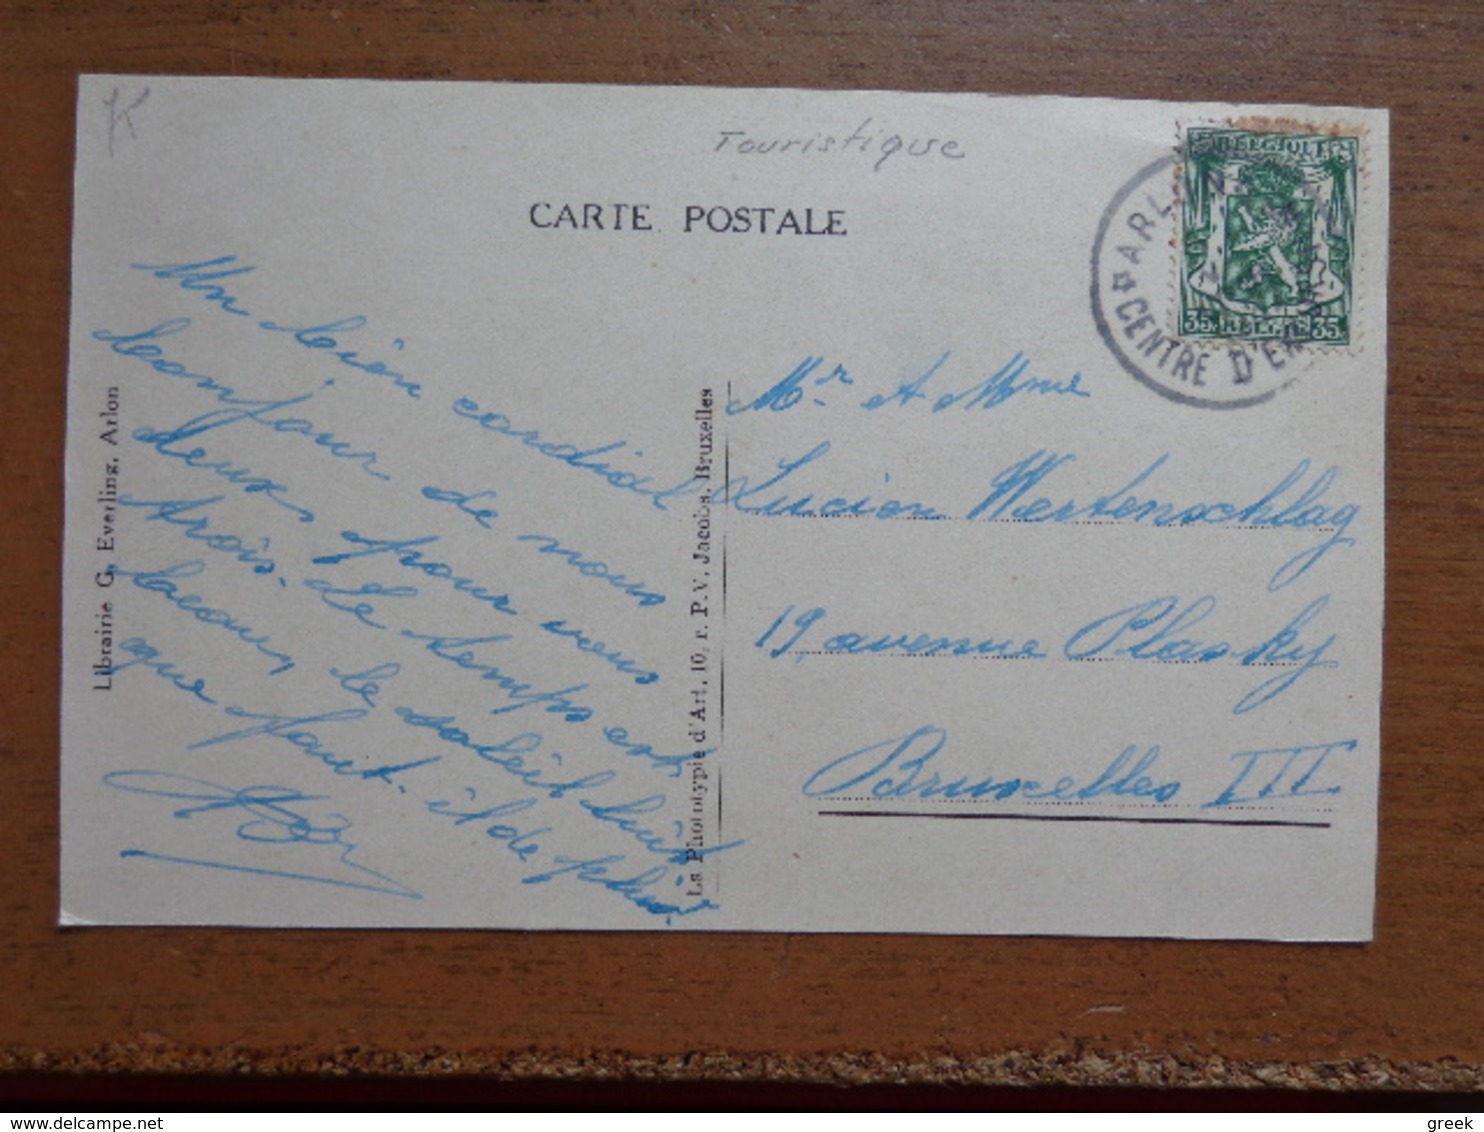 K
Touristique
CARTE POSTALE
BELGIQUE
35c BELGIE 35c
ARLON
CENTRE D'E
Un bien cordial
bonjour de nous
deux pour vous
trois. Le temps est
beau, le soleil luit
que faut-il de plus
Librairie G. Everling, Arlon
La Phototypie d'Art, 10, r. P.V. Jacobs, Bruxelles
Mr et Mme
Lucien Wertenschlag
19, avenue Plasky
Bruxelles III
greek